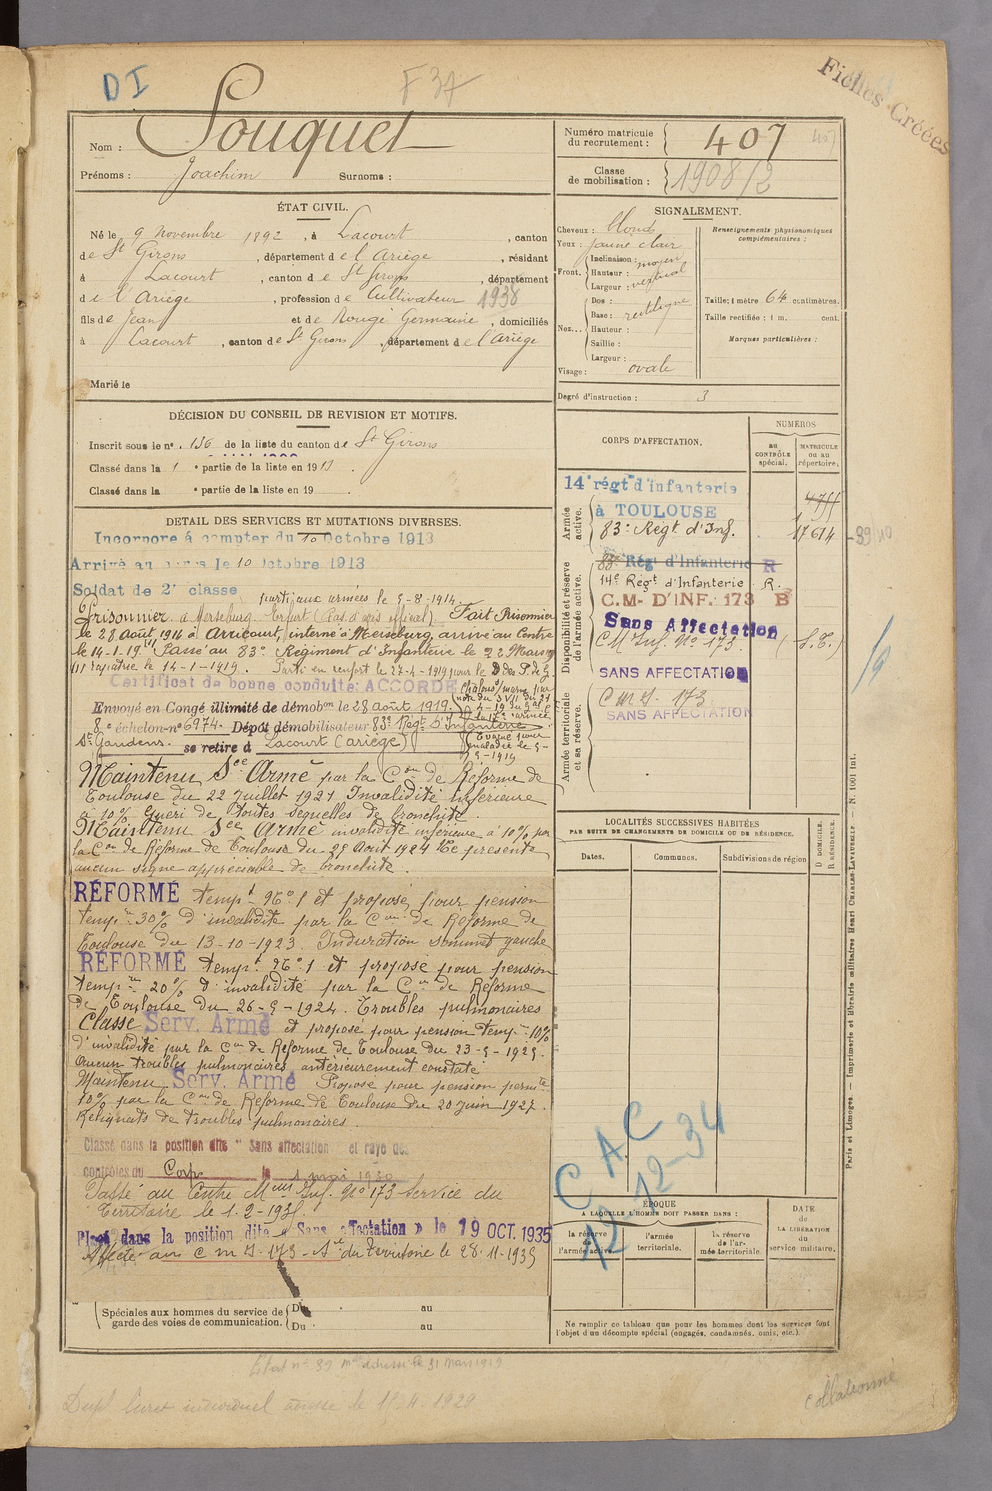 DI
F 37
Fiches Créées
Nom : Souquet
Prénoms : Joachim Surnoms :
Numéro matricule du recrutement : 407
Classe de mobilisation : 1908/2
ÉTAT CIVIL.
Né le 9 novembre 1892, à Lacourt, canton
de St Girons, département de l'Ariège, résidant
à Lacourt, canton de St Girons, département
de l'Ariège, profession de Cultivateur 1938
fils de Jean et de Rougé Germaine, domiciliés
à Lacourt, canton de St Girons, département de l'Ariège
Marié le
DÉCISION DU CONSEIL DE REVISION ET MOTIFS.
Inscrit sous le n° 136 de la liste du canton de St Girons
Classé dans la 1e partie de la liste en 1913.
Classé dans la e partie de la liste en 19 .
DETAIL DES SERVICES ET MUTATIONS DIVERSES.
Incorporé à compter du 10 Octobre 1913
Arrivé au corps le 10 Octobre 1913
Soldat de 2e classe parti aux armées le 5-8-1914.
Prisonnier à Merseburg Erfurt (Pas d'avis officiel). Fait Prisonnier
le 28 Août 1914 à interné à Merseburg, arrivé au Centre
le 14-1-19. Passé au 83e Régiment d'Infanterie le 22 Mars
rapatrié le 14-1-1919. Parti en renfort le 27-4-1919 pour le D des P. de G.
Certificat de bonne conduite: ACCORDÉ
Envoyé en Congé illimité de démobon le 28 août 1919.
8e échelon-n° 6974. Dépôt démobilisateur 83e Régt d'Infanterie
St Gaudens. se retire à Lacourt (Ariège)
(Évacué pour maladie le 5-5-1919
Maintenu See Armé par la Con de Réforme de
Toulouse du 22 Juillet 1921 Invalidité inférieure
à 10% Guéri de toutes séquelles de bronchite.
Maintenu See Armé invalidité inférieure à 10% par
la Con de Réforme de Toulouse du 29 Août 1924 Ne présente
aucun signe appréciable de bronchite.
RÉFORMÉ tempt n° 1 et proposé pour pension
tempre 30% d'invalidité par la Con de Réforme de
Toulouse du 13-10-1923. Induration sommet gauche
RÉFORMÉ tempt n° 1 et proposé pour pension
tempre 20% d'invalidité par la Con de Réforme
de Toulouse du 26-5-1924. Troubles pulmonaires
Classé Serv. Armé et proposé pour pension tempre 10%
d'invalidité par la Con de Réforme de Toulouse du 23-5-1925.
Aucun troubles pulmonaires antérieurement constaté
Maintenu Serv. Armé Proposé pour pension permte
10% par la Con de Réforme de Toulouse du 20 Juin 1927.
Reliquats de troubles pulmonaires.
Classé dans la position dite "Sans affectation" et rayé des
contrôles du Corps le 1 mai 1930
Passé au Centre Inf. N° 173 Service du
Territoire le 1.2-193
Placé dans la position dite « Sans affectation » le 19 OCT. 1935
Affecté au C M I 173 - Sce du Territoire le 28-11-1935
Spéciales aux hommes du service de garde des voies de communication.
Du au
Du au
SIGNALEMENT.
Cheveux : blonds
Yeux : jaune clair
Front. Inclinaison : moyen
Hauteur : vertical
Largeur :
Nez... Dos : rectiligne
Base :
Hauteur :
Saillie :
Largeur :
Visage : ovale
Renseignements physionomiques complémentaires :
Taille : 1 mètre 64 centimètres.
Taille rectifiée : 1 m. cent.
Marques particulières :
Degré d'instruction : 3
CORPS D'AFFECTATION.
NUMÉROS
au CONTRÔLE spécial.
MATRICULE ou au répertoire.
Armée active.
14e régt d'infanterie
à TOULOUSE
83e Régt d'Inf. 17614
Disponibilité et réserve de l'armée active.
83e Rég d'Infanterie R
14e Régt d'Infanterie R.
C.M- D'INF. 173 B
Sans Affectation
C M Inf. N° 173. (S.T.)
SANS AFFECTATION
Armée territoriale et sa réserve.
C m I. 173
SANS AFFECTATION
LOCALITÉS SUCCESSIVES HABITÉES
PAR SUITE DE CHANGEMENTS DE DOMICILE OU DE RÉSIDENCE.
Dates.
Communes.
Subdivisions de région
D DOMICILE.
R RÉSIDENCE.
CAC
12-34
ÉPOQUE
À LAQUELLE L'HOMME DOIT PASSER DANS :
la réserve de l'armée active.
l'armée territoriale.
la réserve de l'armée territoriale.
DATE de LA LIBÉRATION du service militaire.
Ne remplir ce tableau que pour les hommes dont les services font
l'objet d'un décompte spécial (engagés, condamnés, omis, etc.).
Paris et Limoges. — Imprimerie et librairie militaires Henri CHARLES-LAVAUZELLE — N. 1001 Int.
État n° 39 adressé le 31 Mars 1919
Dupl livret individuel adressé le 1929
Collationné